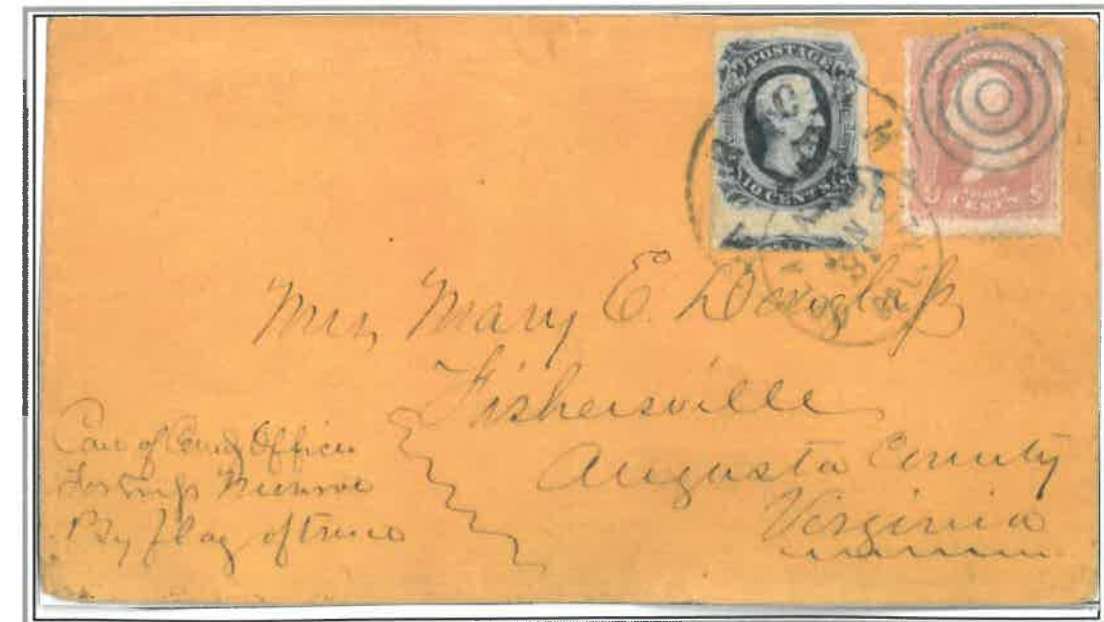 POSTAGE
10 CENTS
CENTS
Mrs, Mary E. Douglass
Fishersville
Augusta County
Virginia
Care of Comg Officer
Fortress Munroe
By flag of Truce